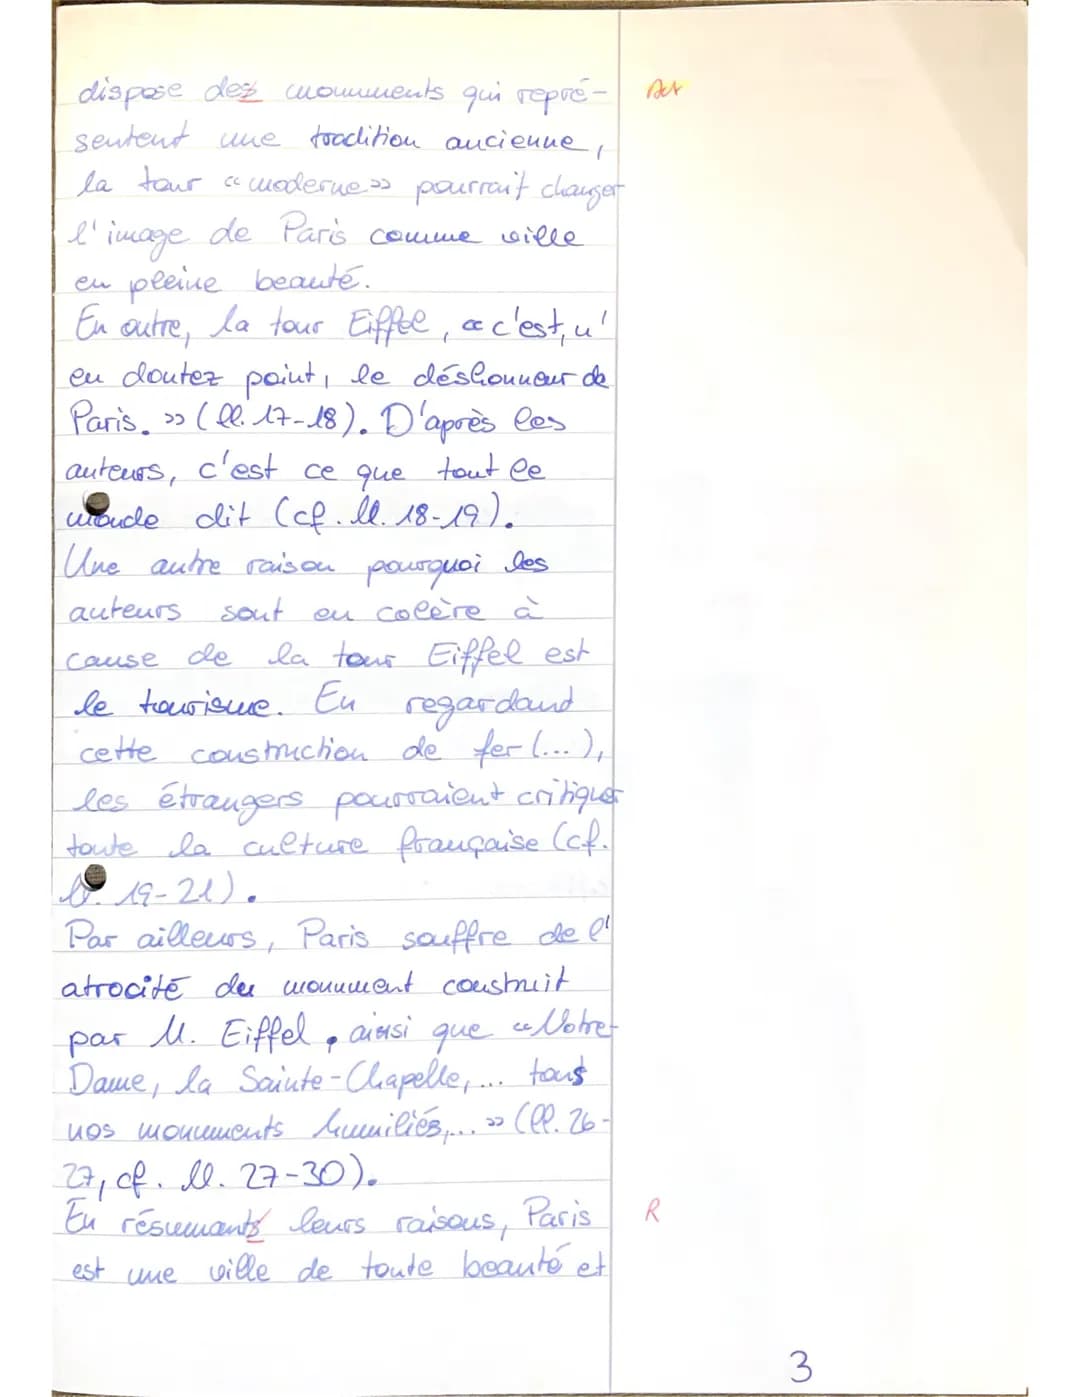 dispose des monuments qui repré- Art
sentent une tradition ancienne,
la tour « moderne » pourrait changer
l'image de Paris comme ville
en pleine beauté.
En outre, la tour Eiffel, « c'est, n'
en doutez point, le déshonneur de
Paris. » (ll. 17-18). D'après les
auteurs, c'est ce que tout le
monde dit (cf. ll. 18-19).
Une autre raison pourquoi les
auteurs sont en colère à
cause de la tour Eiffel est
le tourisme. En regardand
cette construction de fer (...),
les étrangers pourraient critiquer
toute la culture française (cf.
ll. 19-21).
Par ailleurs, Paris souffre de l'
atrocité du monument construit
par M. Eiffel, ainsi que « Notre-
Dame, la Sainte-Chapelle,... tous
nos monuments humiliés,... » (ll. 26-
27, cf. ll. 27-30).
En résumants leurs raisons, Paris R
est une ville de toute beauté et
3